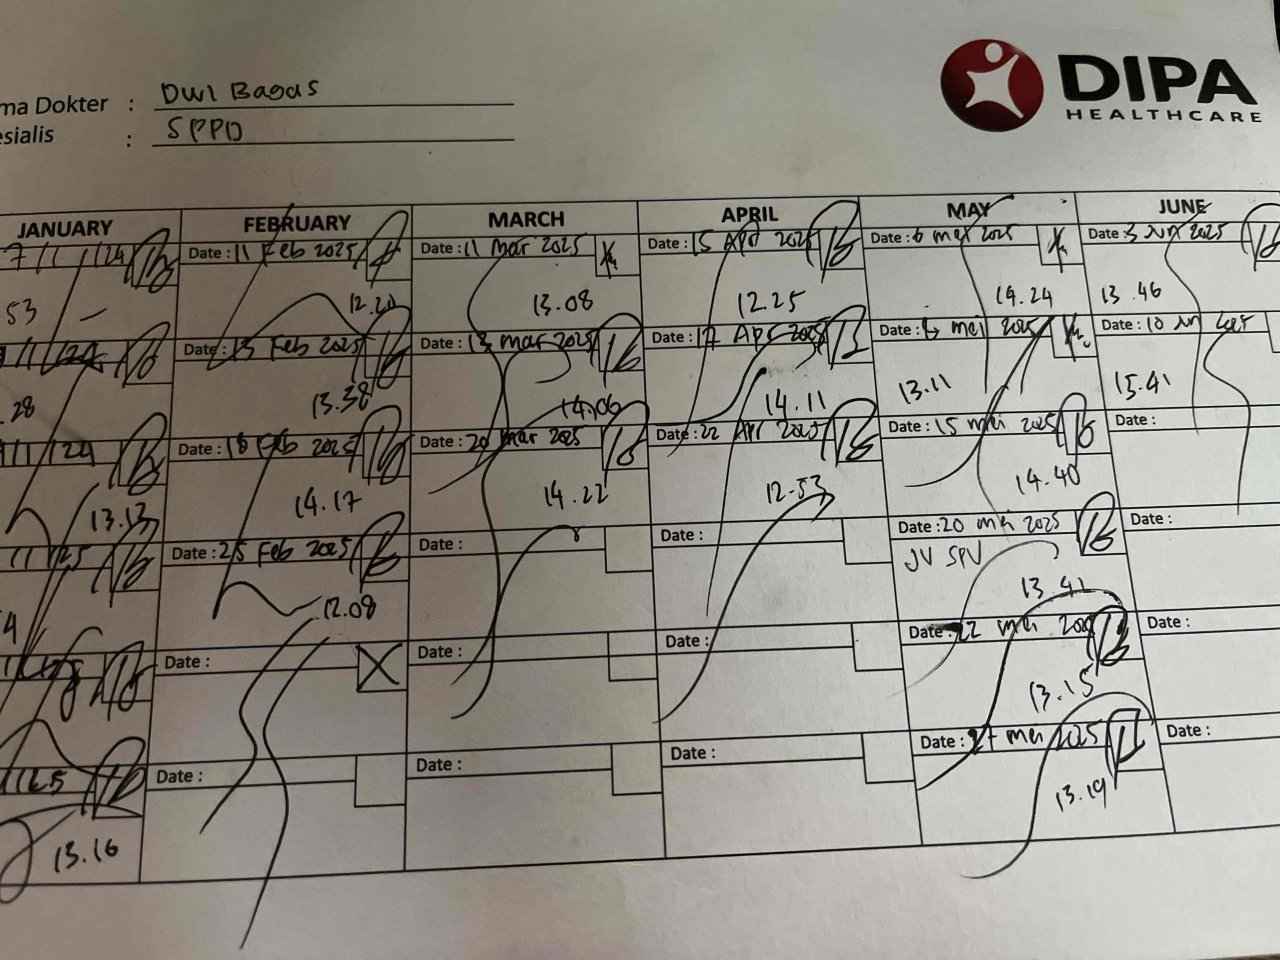 ma Dokter : Dwi Bagas
esialis : SPPD
DIPA
HEALTHCARE
JANUARY FEBRUARY MARCH APRIL MAY JUNE
7/1/24 Date : 11 Feb 2025 Date : 11 Mar 2025 Date : 15 Apr 2025 Date : 6 mei 2025 Date : 3 Jun 2025
53 12.20 13.08 12.25 14.24 13.46
/1/24 Date : 13 Feb 2025 Date : 13 mar 2025 Date : 17 Apr 2025 Date : mei 2025 Date : 10 Jun 2025
28 13.38 14.06 14.11 13.11 15.41
/1/24 Date : 18 Feb 2025 Date : 20 Mar 2025 Date : 22 Apr 2025 Date : 15 mei 2025 Date :
13.13 14.17 14.22 12.53 14.40
/1/25 Date : 25 Feb 2025 Date : Date : Date : 20 mei 2025 Date :
JV SPV
4 12.08 13.41
Date : X Date : Date : Date : 22 mei 2025 Date :
13.15
Date : Date : Date : Date : 27 mei 2025 Date :
13.16 13.19